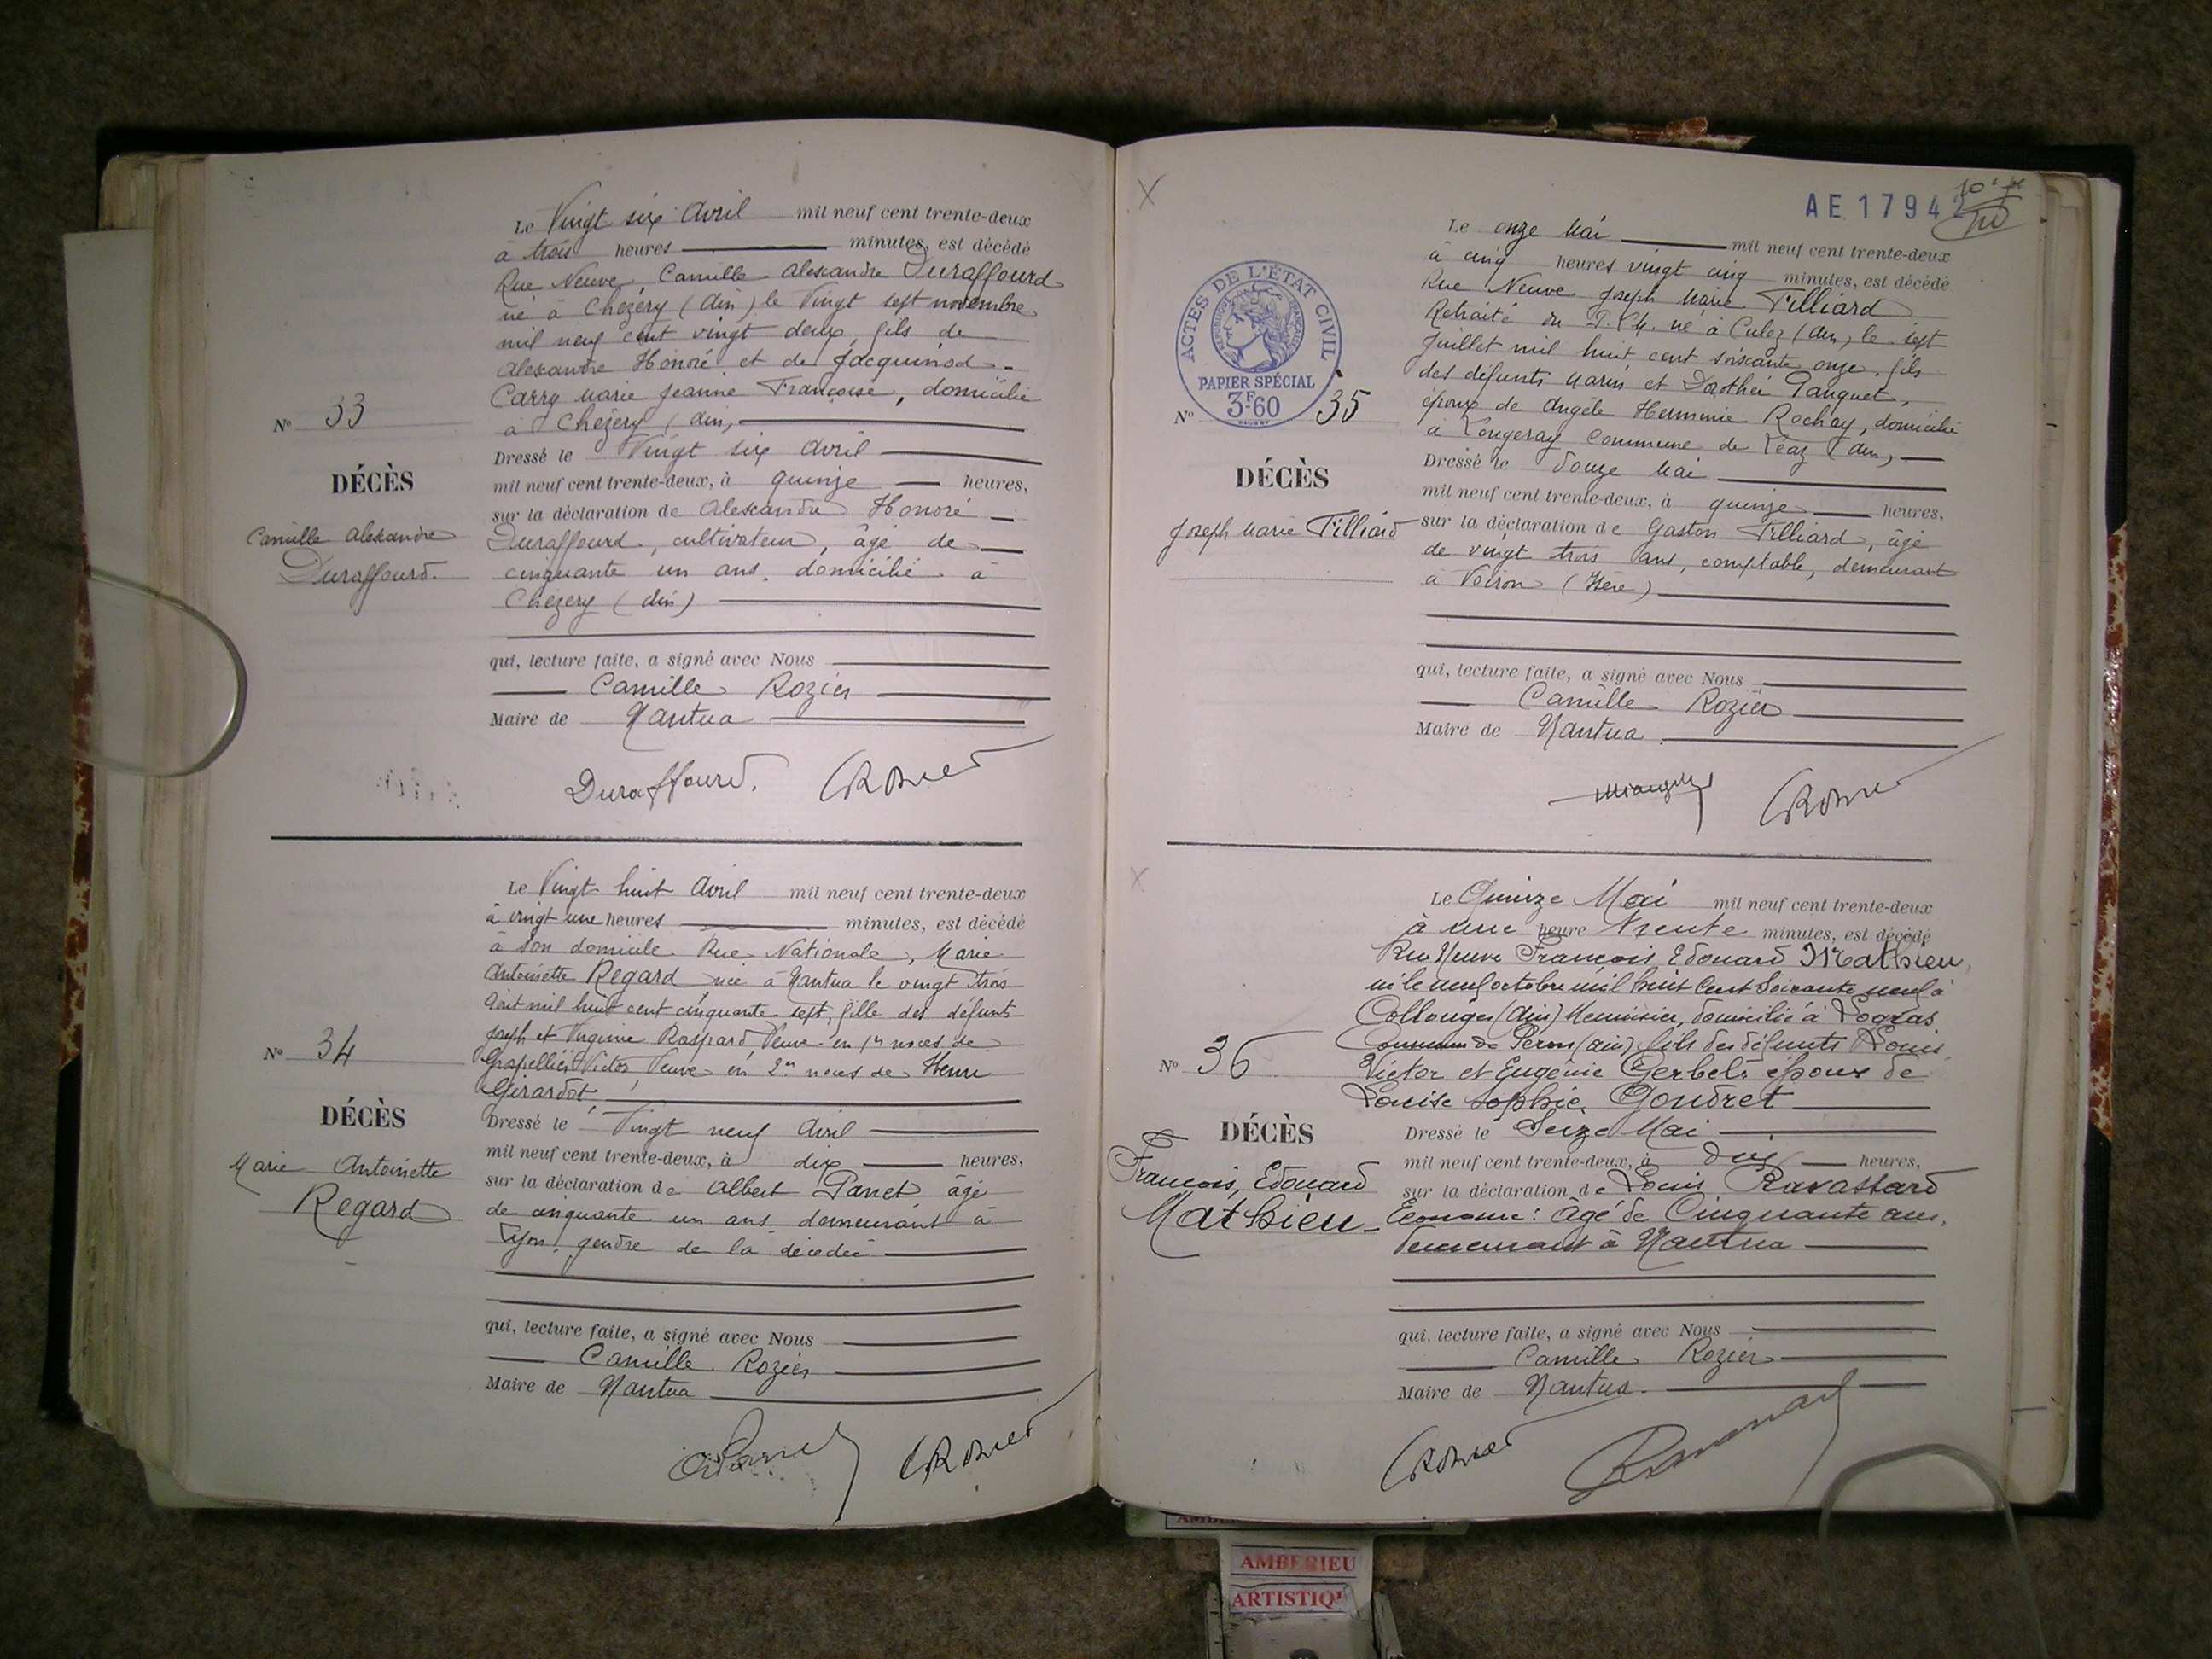 Le Vingt six Avril mil neuf cent trente-deux
à trois heures minutes, est décédé
Rue Neuve, Camille Alexandre Duraffourd
né à Chézery (Ain) le Vingt sept novembre
mil neuf cent vingt deux, fils de
Alexandre Honoré et de Jacquinod-
Carry Marie Jeanne Françoise, domicilié
à Chézery (Ain)
N° 33
DÉCÈS
Camille Alexandre
Duraffourd.
Dressé le Vingt six Avril
mil neuf cent trente-deux, à quinze heures,
sur la déclaration de Alexandre Honoré
Duraffourd, cultivateur, âgé de
cinquante un ans, domicilié à
Chézery (Ain)
qui, lecture faite, a signé avec Nous
Camille Rozier
Maire de Nantua
Duraffourd.
Le Vingt huit Avril mil neuf cent trente-deux
à vingt une heures minutes, est décédé
à son domicile Rue Nationale, Marie
Antoinette Regard née à Nantua le vingt trois
Août mil huit cent cinquante sept, fille des défunts
Joseph et Virginie Raspard, Veuve en 1res noces de
Chapellier Victor, Veuve en 2es noces de Henri
Girardot
N° 34
DÉCÈS
Marie Antoinette
Regard
Dressé le Vingt neuf Avril
mil neuf cent trente-deux, à dix heures,
sur la déclaration de Albert Panet âgé
de cinquante un ans demeurant à
Lyon, gendre de la décédée
qui, lecture faite, a signé avec Nous
Camille Rozier
Maire de Nantua
AE 17942
Le onze Mai mil neuf cent trente-deux
à cinq heures vingt cinq minutes, est décédé
Rue Neuve Joseph Marie Tilliard
Retraité du P.L.M. né à Culoz (Ain) le sept
Juillet mil huit cent soixante onze, fils
des défunts Marin et Dorothée Panguet,
époux de Angèle Herminie Rochay, domicilié
à Longeray commune de Léaz (Ain)
ACTES DE L'ÉTAT CIVIL
RÉPUBLIQUE FRANÇAISE
PAPIER SPÉCIAL
3F60
N° 35
DÉCÈS
Joseph Marie Tilliard
Dressé le Douze Mai
mil neuf cent trente-deux, à quinze heures,
sur la déclaration de Gaston Tilliard, âgé
de vingt trois ans, comptable, demeurant
à Voiron (Isère)
qui, lecture faite, a signé avec Nous
Camille Rozier
Maire de Nantua
Le Quinze Mai mil neuf cent trente-deux
à une heure trente minutes, est décédé
Rue Neuve François, Edouard Mathieu,
né le neuf octobre mil huit cent soixante neuf à
Collonges (Ain) Menuisier, domicilié à Logras
Commune de Peron (Ain) fils des défunts Louis,
Victor et Eugénie Gerbel, époux de
Louise Sophie Goudret
N° 36
DÉCÈS
François, Edouard
Mathieu
Dressé le Seize Mai
mil neuf cent trente-deux, à dix heures,
sur la déclaration de Louis Ravassard
Econome: Agé de Cinquante ans,
demeurant à Nantua
qui, lecture faite, a signé avec Nous
Camille Rozier
Maire de Nantua
AMBERIEU
ARTISTIQU